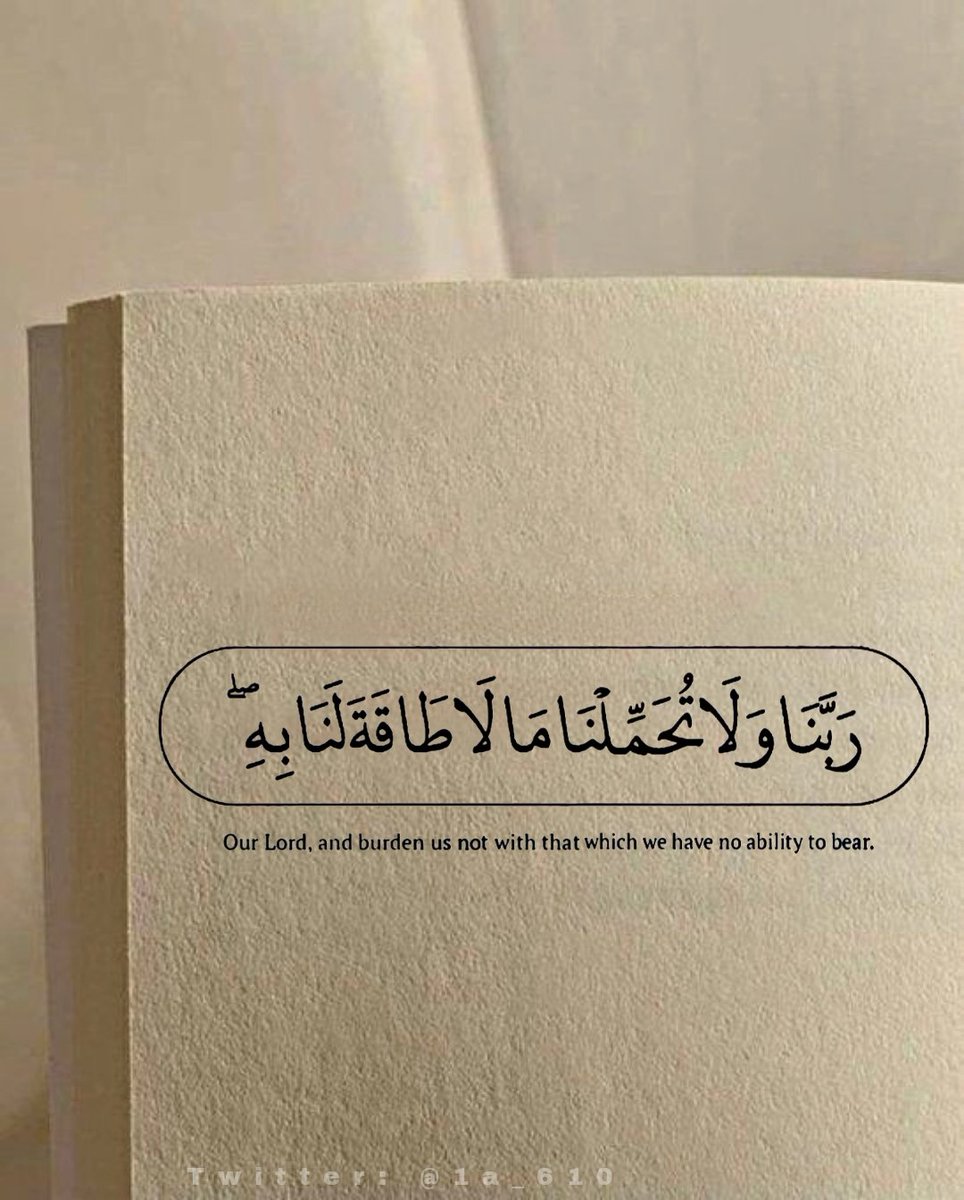 رَبَّنَا وَلَا تُحَمِّلْنَا مَا لَا طَاقَةَ لَنَا بِهِ ۖ
Our Lord, and burden us not with that which we have no ability to bear.
Twitter: @1a_610